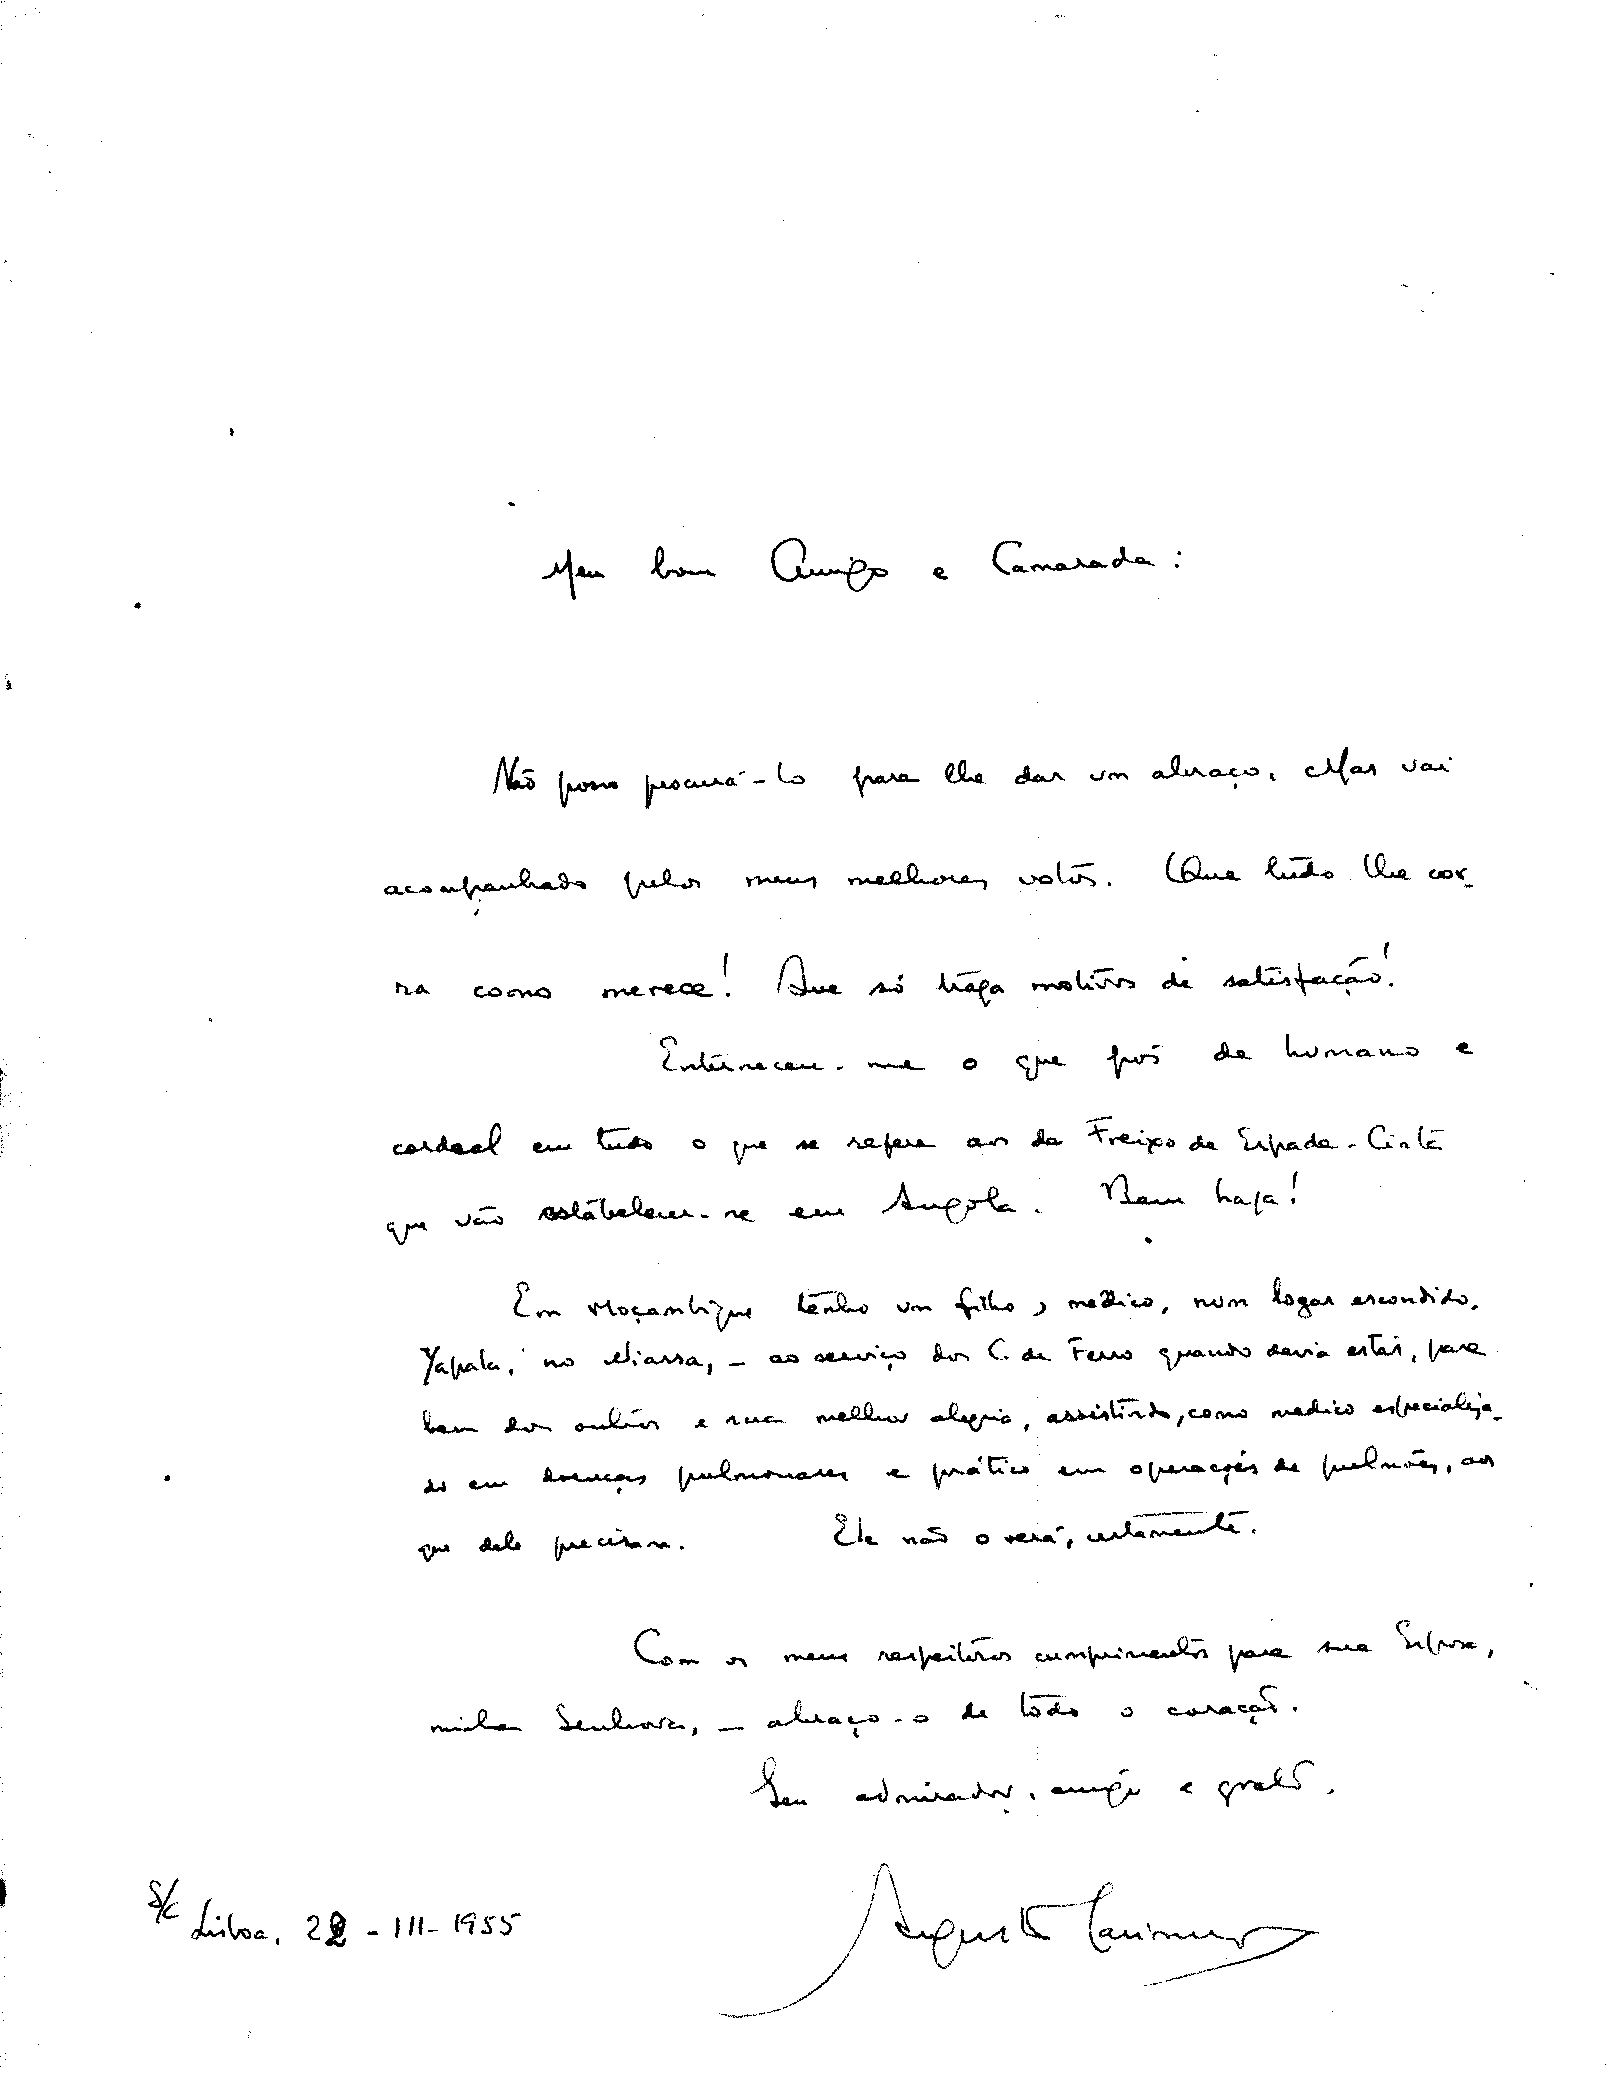 Meu bom Amigo e Camarada:
Não posso procurá-lo para lhe dar um abraço. Mas vai
acompanhado pelos meus melhores votos. Que tudo lhe cor-
ra como merece! Que só traga motivos de satisfação!
Enterneceu-me o que pôs de humano e
cordeal em tudo o que se refere aos de Freixo de Espada-Cinta
que vão estabelecer-se em Angola. Bem haja!
Em Moçambique tenho um filho, médico, num logar escondido,
Yapala, no Niassa, - ao serviço dos C. de Ferro quando devia estar, para
bem dos outros e sua melhor alegria, assistindo, como medico especializa-
do em doenças pulmonares e prático em operações de pulmões, aos
que dele precisam. Ele não o verá, certamente.
Com os meus respeitosos cumprimentos para sua Esposa,
minha Senhora, - abraço-o de todo o coração.
Seu admirador, amigo e grato.
Augusto Casimiro
S/C Lisboa, 22-III-1955